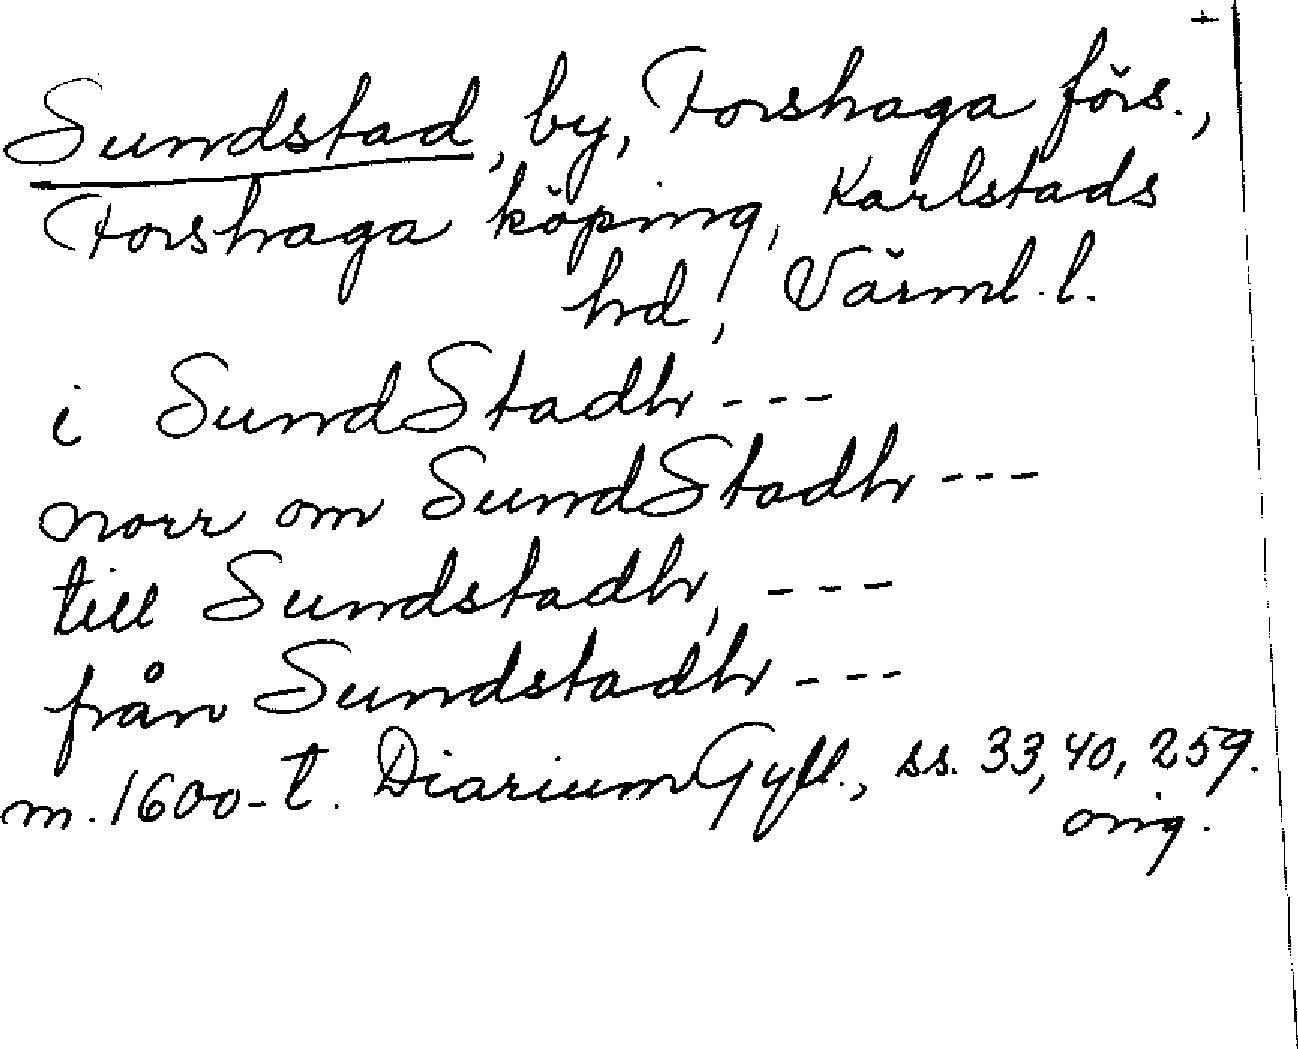 +
Sundstad, by, Forshaga förs.,
Forshaga köping, Karlstads
hd, Värml. l.
i SundStadh ---
norr om SundStadh ---
till Sundstadh, ---
från Sundstadh ---
m. 1600-t. Diarium Gyll., ss. 33, 40, 259.
orig.